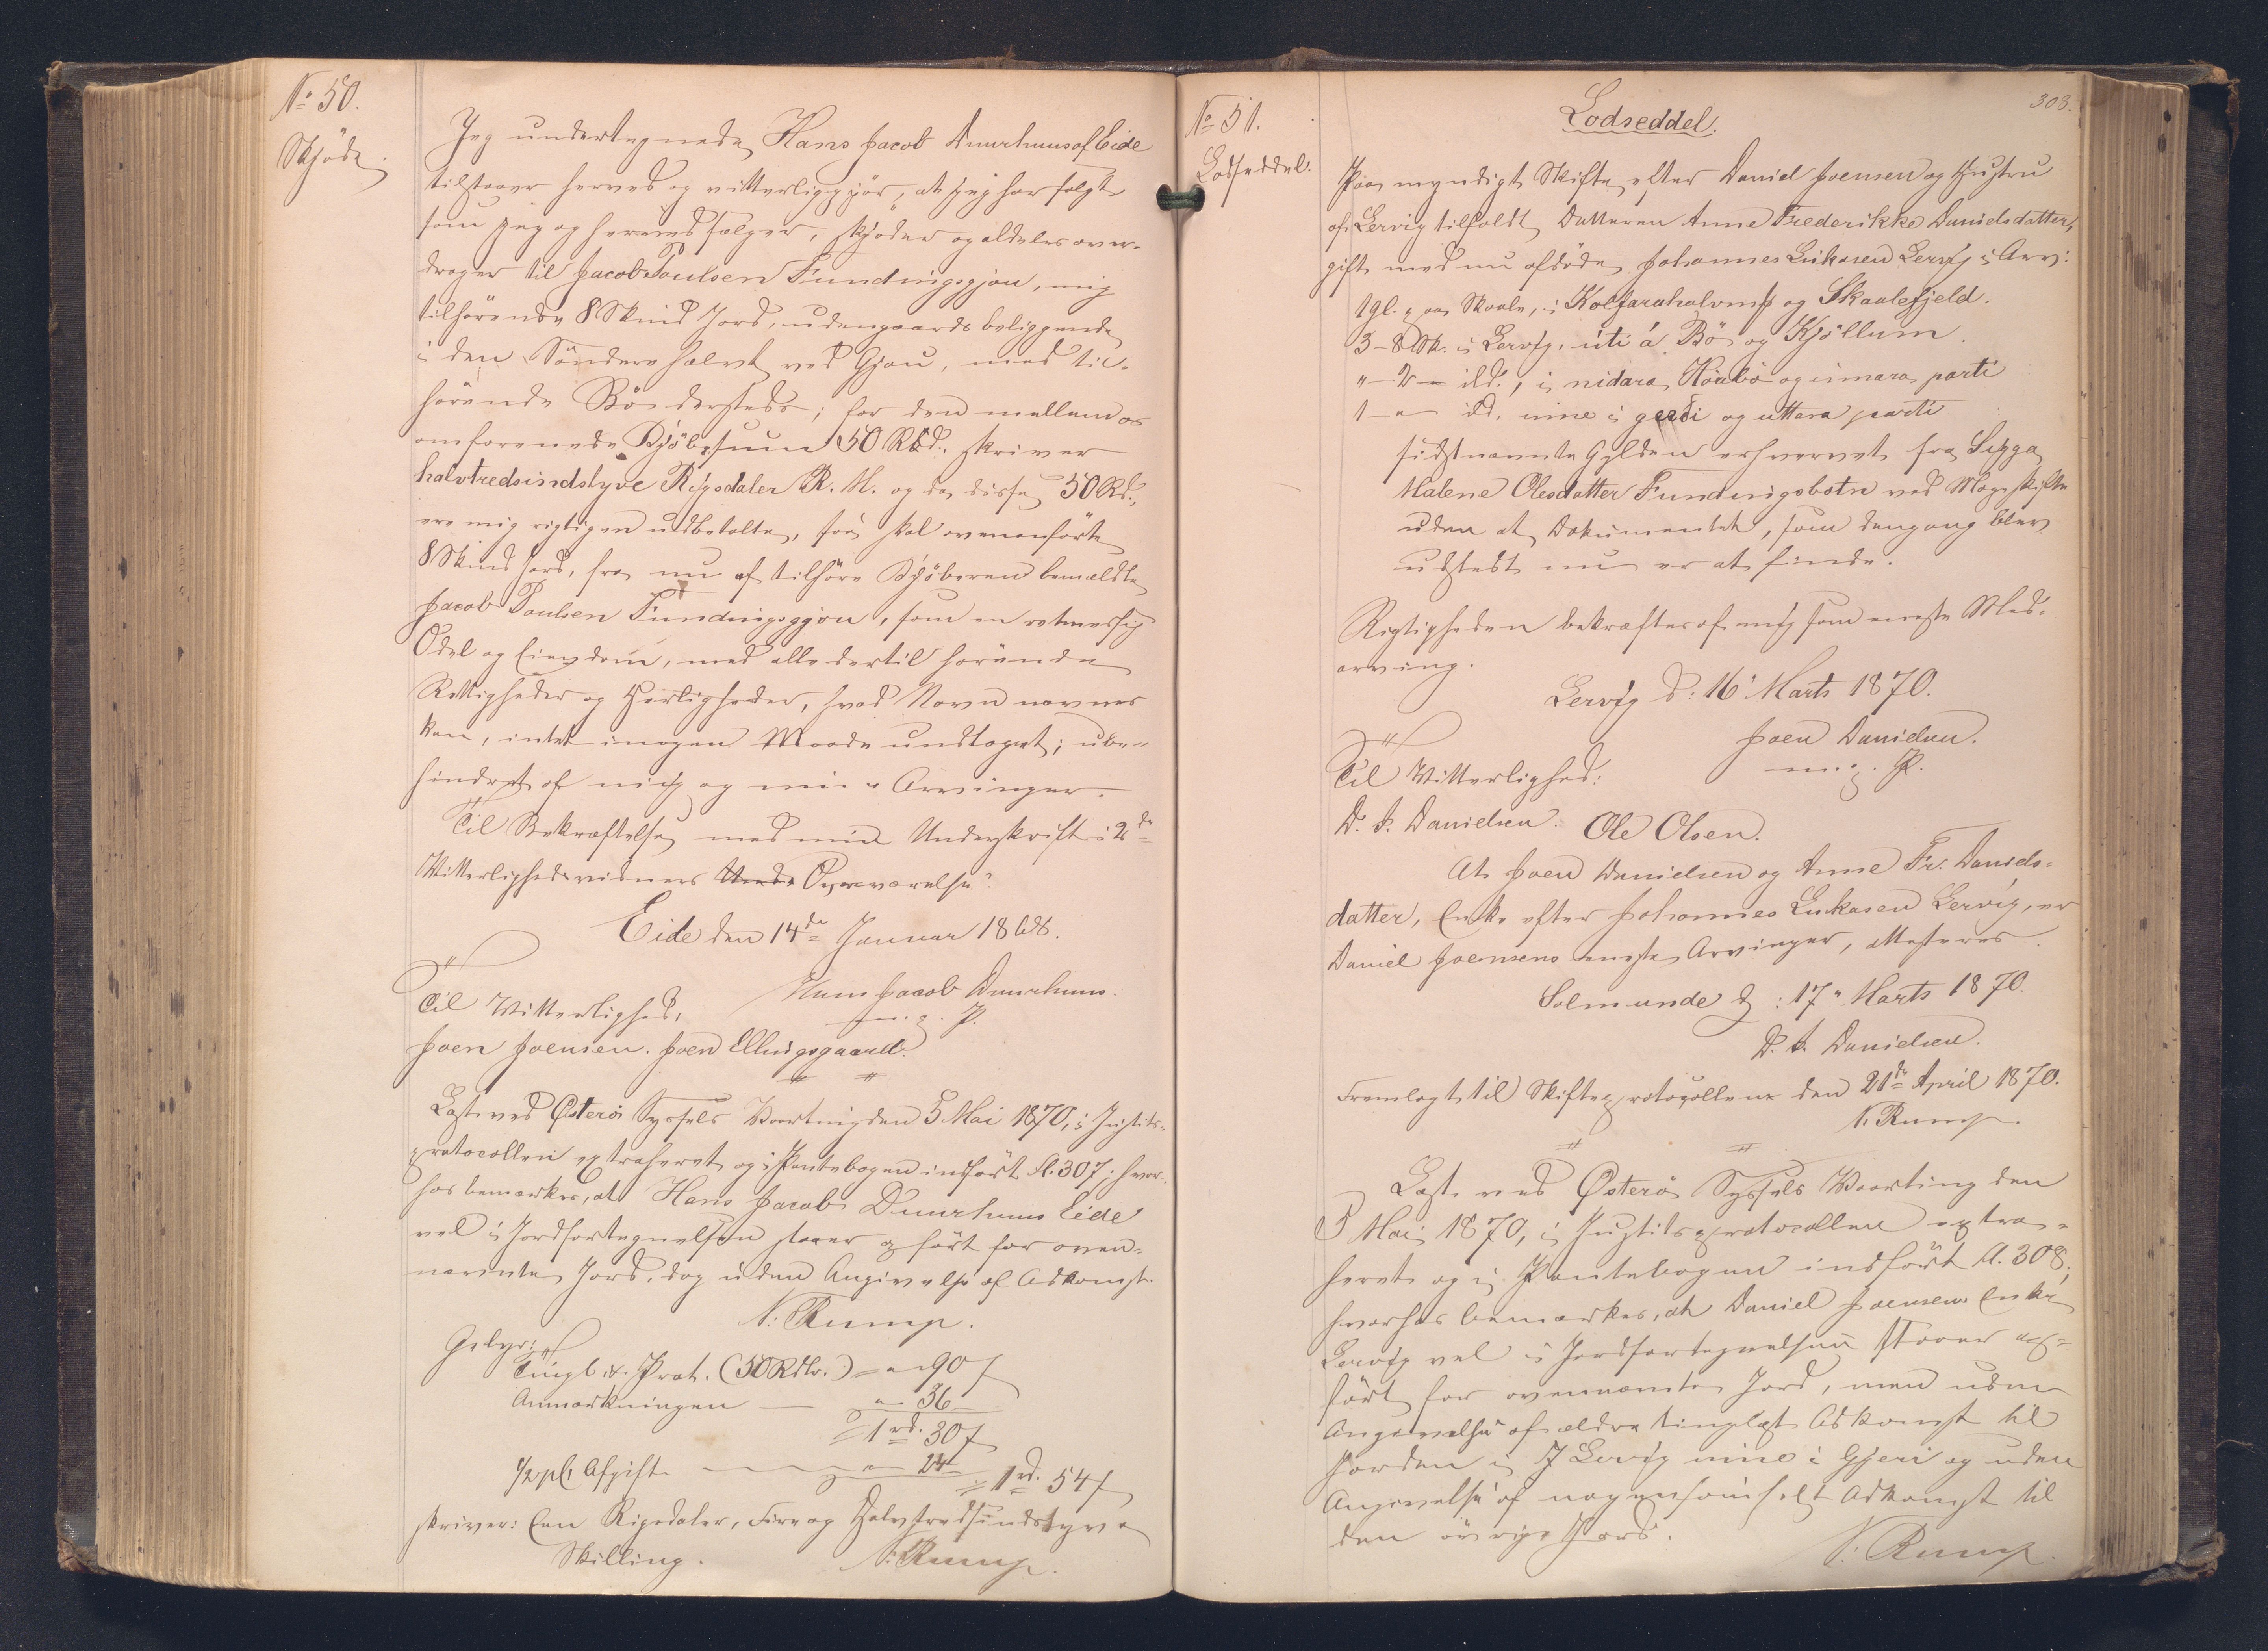 No 50.
Skjöde.
Jeg undertegnede, Hans Jacob Duurhuus af Eide
tilstaaer herved og vitterliggjör, at jeg har solgt
som jeg og herved sælger, skjøder og aldeles over-
drager til Jacob Poulsen Fundingsgjou, mig
tilhörende 8 Skind Jord, udengaards beliggende
i den Söndere halvt ved Gjou, med til-
hörende Bö dersteds; for den mellem os
omforenede Kjöbesum 50 Rbd., skriver
halvtredsindstyve Rigsdaler R. M. og da disse 50 Rd.,
ere mig rigtigen udbetalte, saa skal ovenanförte
8 Skind Jord, fra nu af tilhöre Kjöberen bemeldte
Jacob Poulsen Fundingsgjou, som en retmessig
Odel og Eiendom, med alle dertil hörende
Rettigheder og Herligheder, hvad Navn nævnes
kan, intet i nogen Maade undtaget; ube-
hindret af mig og mine Arvinger.
Til Bekræftelse med min Underskrift i 2de
Vitterlighedsvidners Overværelse.
Eide den 14de Januar 1868.
Hans Jacob Duurhuus.
m. g. P.
Til Vitterlighed,
Joen Joensen. Joen Ellingsgaard.
Læst ved Østerö Syssels Vaarting den 5 Mai 1870, i Justits-
protocollen extraheret og i Pantebogen indfört fl. 307; hvor-
hos bemærkes, at Hans Jacob Duurhuus Eide
vel i Jordfortegnelsen staaer opfört for oven-
nævnte Jord, dog uden Angivelse af Adkomst.
N: Rump.
Gebyr:
Tingl. & Prot. (50 Rdlr.) = " 90 s
Anmærkningen — " 36 "
= 1 rd. 30 s
1/2 pCt Afgift — " 24
= 1 rd. 54 s
skriver: Een Rigsdaler, Fire og Halvtredsindstyve
Skilling. N: Rump.
303.
No 51.
Lodseddel.
Lodseddel.
Paa myndigt Skifte efter Daniel Joensen og Hustru
af Lervig tilfaldt Datteren Anne Frederikke Danielsdatter,
gift med nu afdöde Johannes Lukasen Lervig i Arv:
1 gl. paa Skaale, i Kolfarahalvmf og Skaalefjeld.
3 – 8 Sk. i Lervig, úti á Bö og Kjöllum.
" – 2 – ibd., i nidara Höabö og inmara parti
1 – " – ibd. inne i gerdi og uttera parti
sidstnævnte Gylden erhvervet fra Sigga
Malene Olesdatter Fundingsbotn ved Mageskifte
uden at Dokumentet, som dengang blev
udstedt nu er at finde.
Rigtigheden bekræftes af mig som eneste Med-
arving.
Lervig d: 16' Marts 1870.
Joen Danielsen.
m. g. P.
Til Vitterlighed:
D. J. Danielsen. Ole Olsen.
At Joen Danielsen og Anne Fr. Daniels-
datter, Enke efter Johannes Lukasen Lervig, er
Daniel Joensens eneste Arvinger, attesteres.
Solmunde d: 17" Marts 1870.
D. J. Danielsen.
Fremlagt til Skifteprotocollen den 21de April 1870.
N. Rump.
Læst ved Østerö Syssels Vaarting den
5 Mai 1870, i Justitsprotocollen extra-
heret og i Pantebogen indfört fl. 308,
hvorhos bemærkes, at Daniel Joensens Enke
Lervig vel i Jordfortegnelsen staaer op-
fört for ovennævnte Jord, men uden
Angivelse af ældre tinglæst Adkomst til
Jorden i Lervig inne i Gjeri og uden
Angivelse af nogensomhelst Adkomst til
den övrige Jord.
N: Rump.